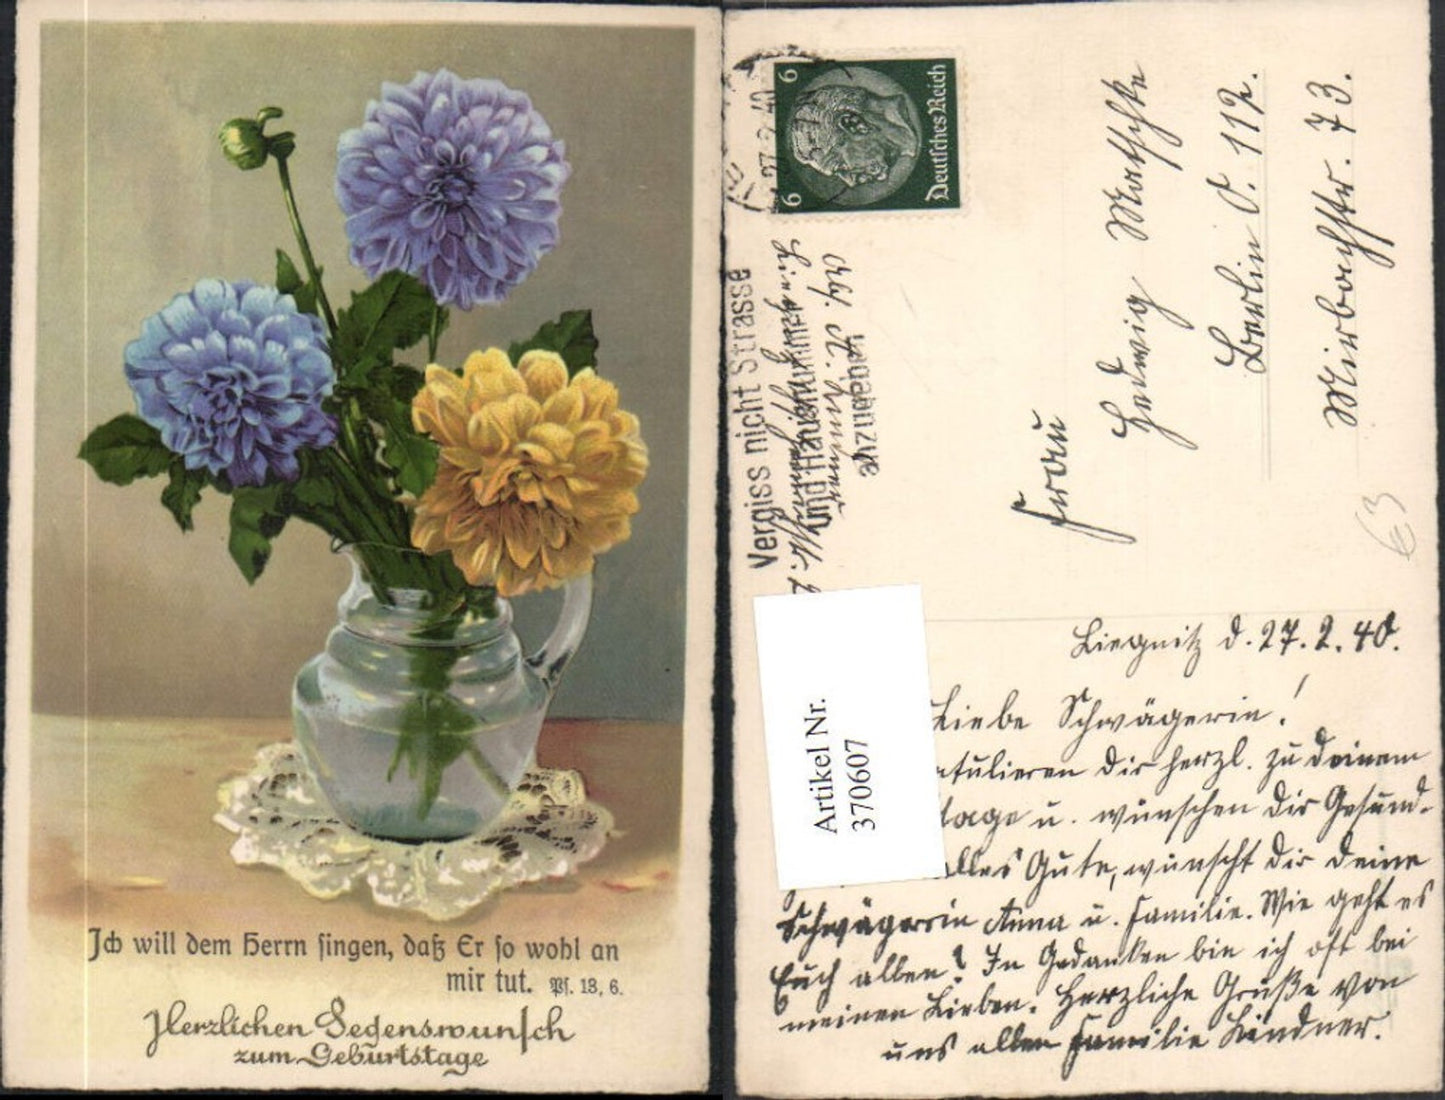 Ich will dem Herrn singen, daß Er so wohl an
mir tut. Ps. 13, 6.
Herzlichen Segenswunsch
zum Geburtstage
6 6
Deutsches Reich
27.2.40
Vergiss nicht Strasse
und Hausnummer
anzugeben
Frau
Hedwig Matschke
Berlin O. 112.
Mirbachstr. 73.
Artikel Nr.
370607
Liegnitz d. 27.2.40.
Liebe Schwägerin!
atulieren dir herzl. zu deinem
tage u. wünschen dir Gesund-
alles Gute, wünscht dir deine
Schwägerin Anna u. Familie. Wie geht es
Euch allen? In Gedanken bin ich oft bei
meinen Lieben. Herzliche Grüße von
uns allen Familie Lindner.